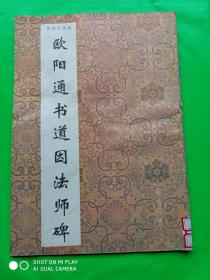 欧阳通书道因法师碑
SHOT ON MI 6
MI DUAL CAMERA